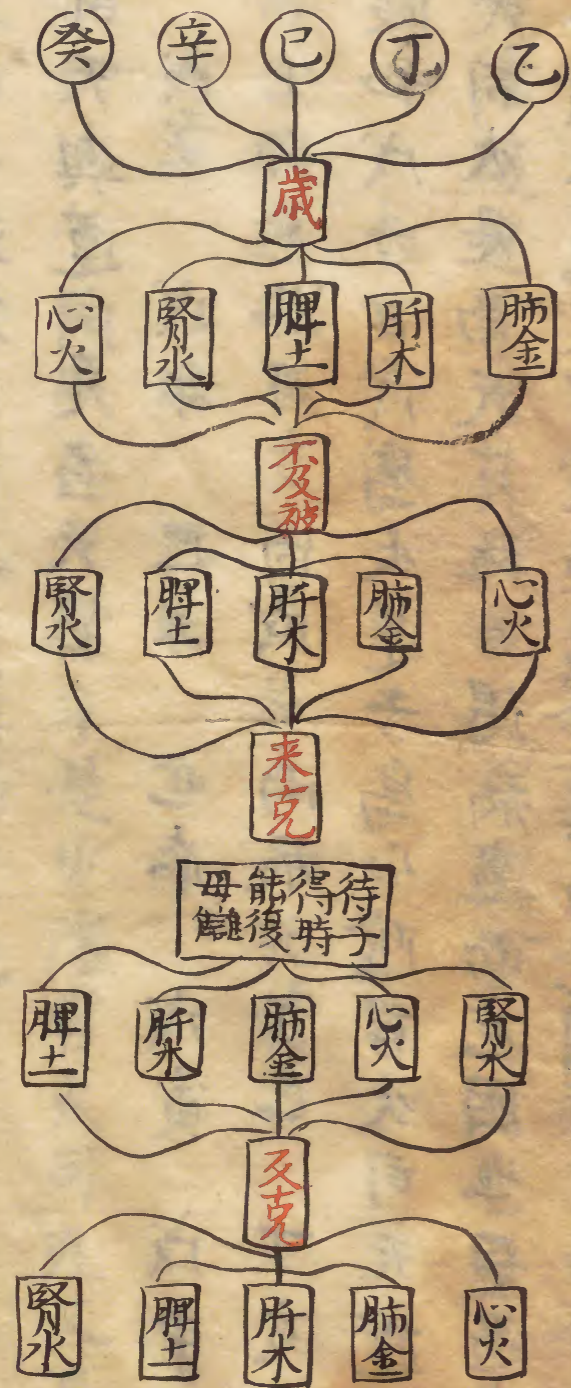 乙 丁 巳 辛 癸
歳
肺金 肝木 脾土 腎水 心火
不及被
心火 肺金 肝木 脾土 腎水
来克
待子
得時
能復
母讎
腎水 心火 肺金 肝木 脾土
反克
心火 肺金 肝木 脾土 腎水